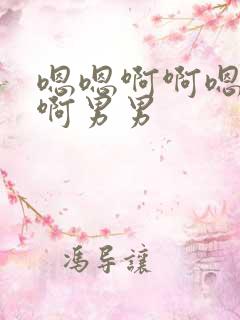 嗯嗯啊啊嗯
啊男男
冯导让